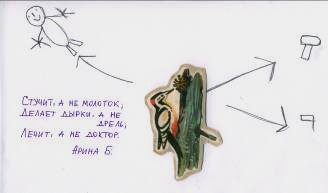 Стучит, а не молоток;
Делает дырки, а не
дрель;
Лечит, а не доктор.
Арина Б.